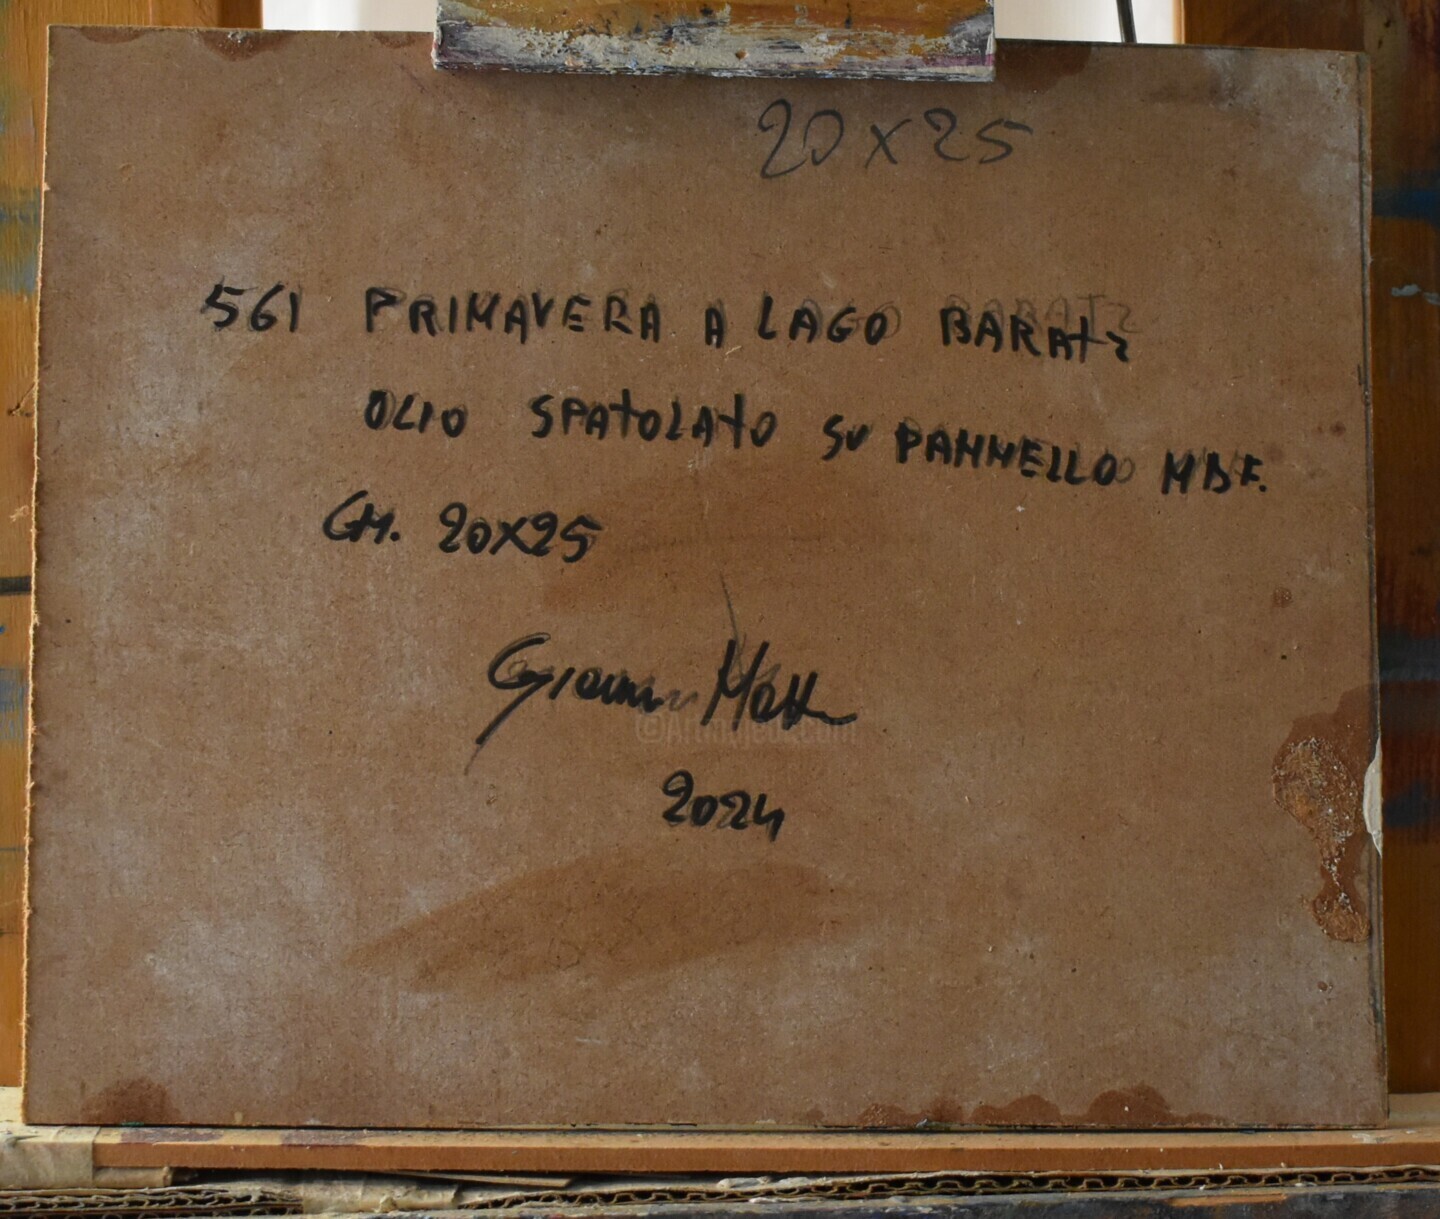 20 x 25
561 PRIMAVERA A LAGO BARATZ
OLIO SPATOLATO SU PANNELLO MDF.
CM. 20X25
Giovanni
2024